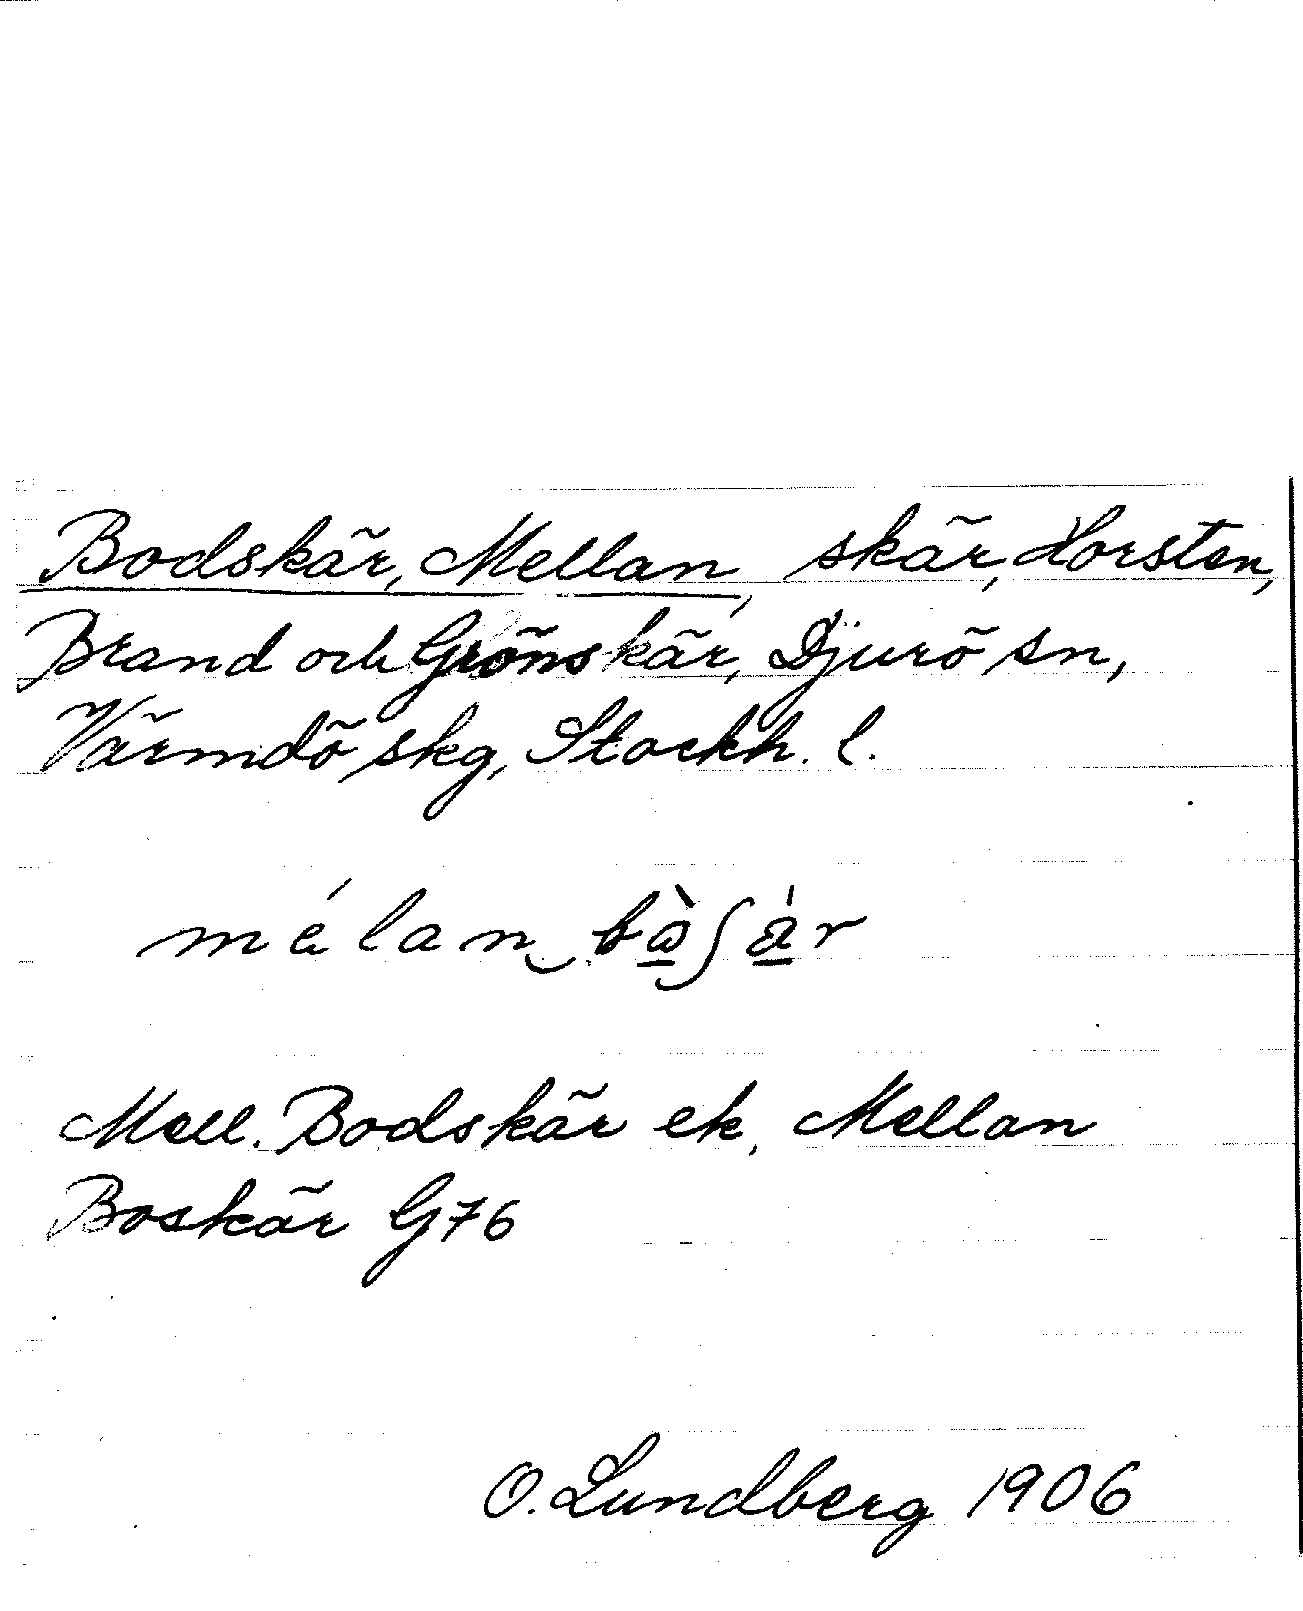 Bodskär, Mellan, skär, Horsten,
Brand och Grönskär, Djurö sn,
Värmdö skg, Stockh. l.
mélan bὼ̱ʃä̱́r
Mell. Bodskär ek, Mellan
Boskär G76
O. Lundberg 1906